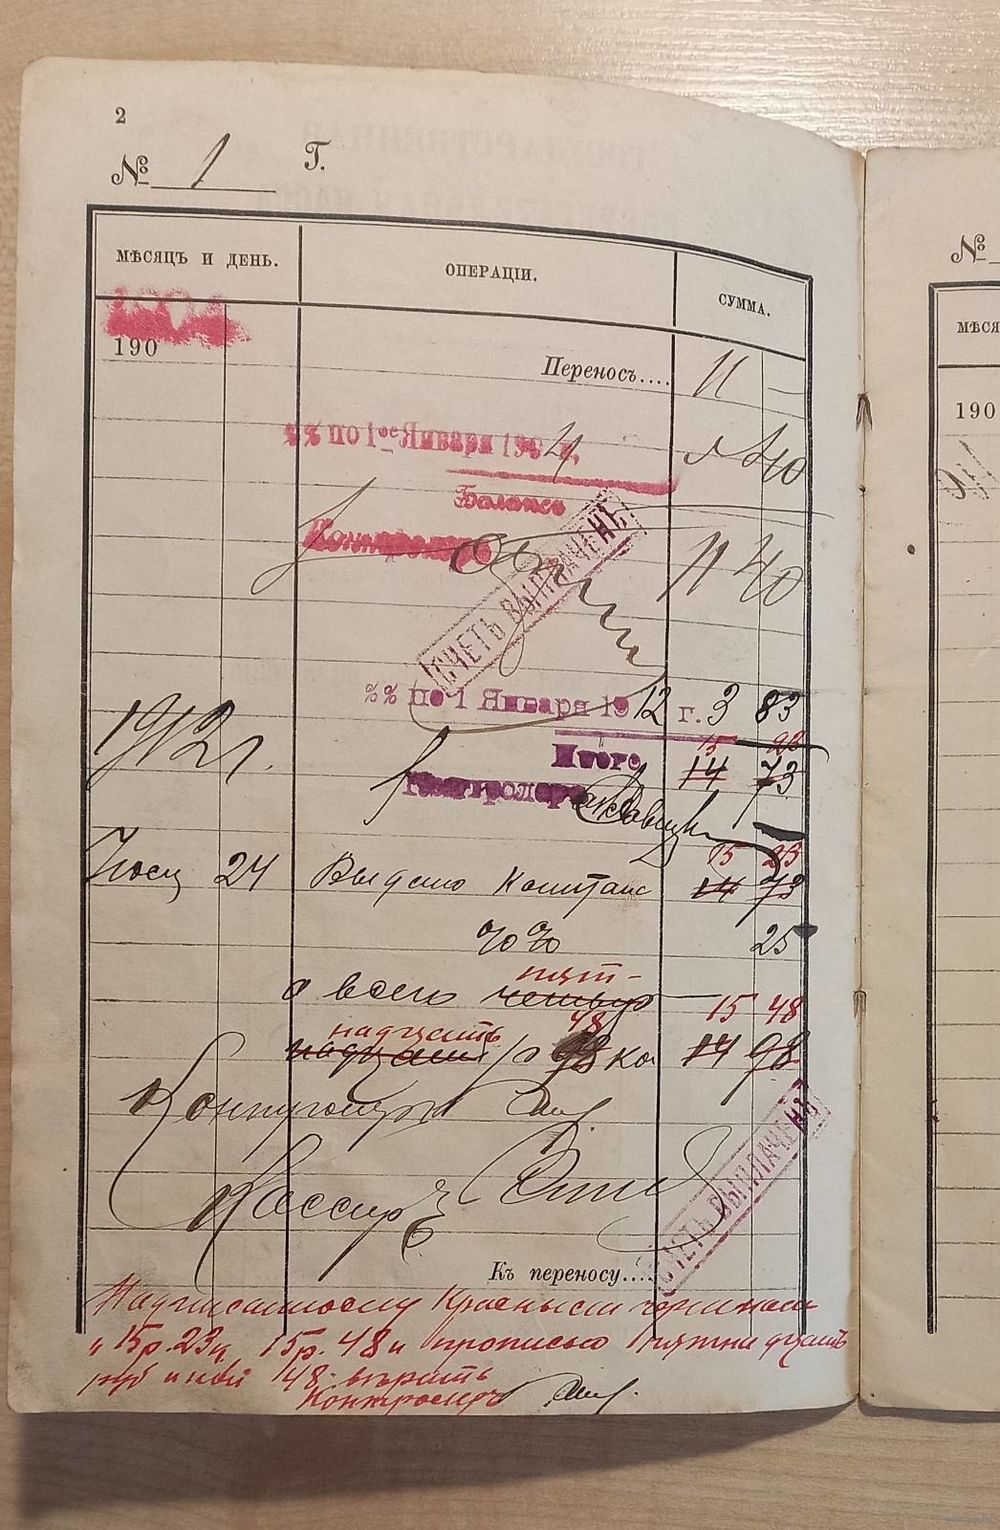 2
№ 1 Г.
МѢСЯЦЪ И ДЕНЬ. ОПЕРАЦІИ. СУММА.
190
Переносъ.... 11 —
%% по 1ое Января 1904 г. 40
Балансъ
Контролеръ 11 40
СЧЕТЪ ВЫПЛАЧЕНЪ
%% по 1 Января 1912 г. 3 83
15 23
1912 г. Итого 14 73
Контролеръ
15 23
24 Выдано Капитала 14 73
%% 25
пят-
а всего четыр 15 48
надцать 48
надцать р 98 ко 14 98
Контролеръ
Кассиръ
СЧЕТЪ ВЫПЛАЧЕНЪ
Къ переносу....
Надписанному красными чернилами
„15р. 23к. 15р. 48к прописью пятнадцать
руб и коп 48 вѣрить
Контролеръ
№
МѢСЯ
190